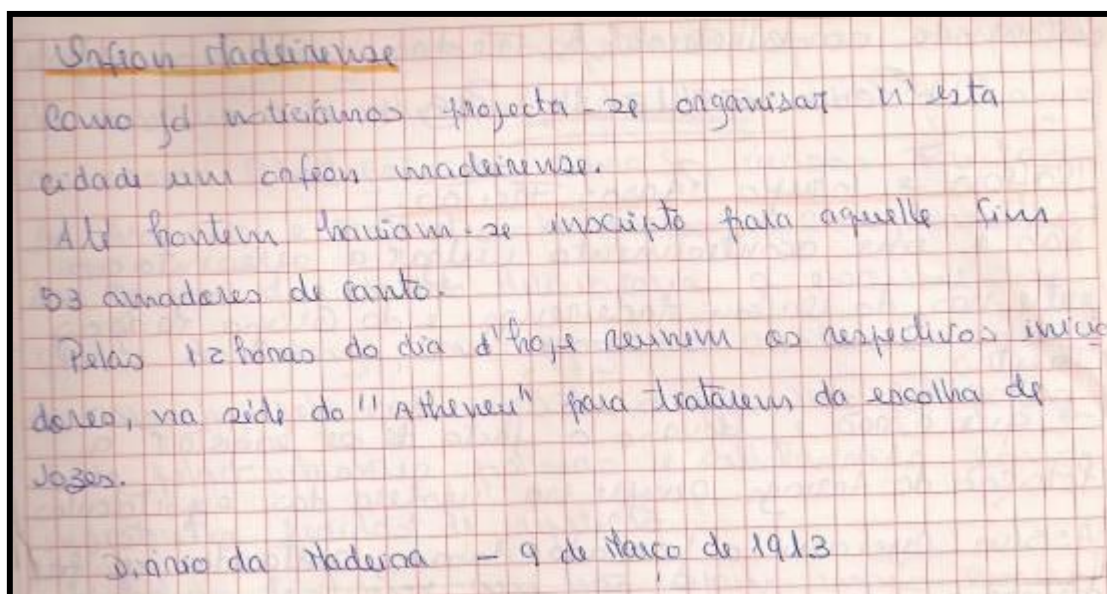 Orfeon Madeirense
Como já noticiámos projecta-se organisar n'esta
cidade um orfeon madeirense.
Até hontem haviam-se inscripto para aquelle fim
53 amadores de canto.
Pelas 12 horas do dia d'hoje reunem os respectivos inicia
dores, na séde do "Atheneu" para tratarem da escolha de
vozes.
Diario da Madeira - 9 de Março de 1913